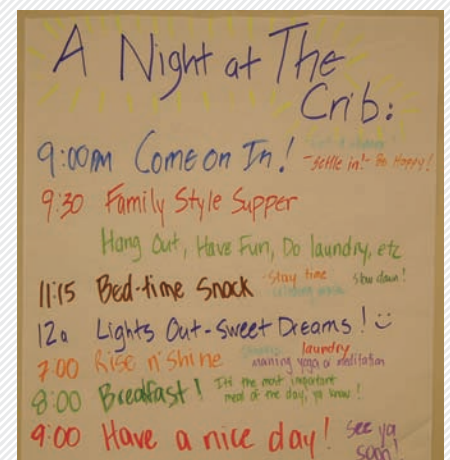 A Night at The
Crib:
9:00pm Come on In! -settle in!- Be Happy!
9:30 Family Style Supper
Hang Out, Have Fun, Do laundry, etc
11:15 Bed-time Snack -Story time Slow down!
12a Lights Out-Sweet Dreams!
7:00 Rise n' Shine laundry
morning yoga or meditation
8:00 Breakfast! It's the most important
meal of the day, ya know!
9:00 Have a nice day! See ya
soon!